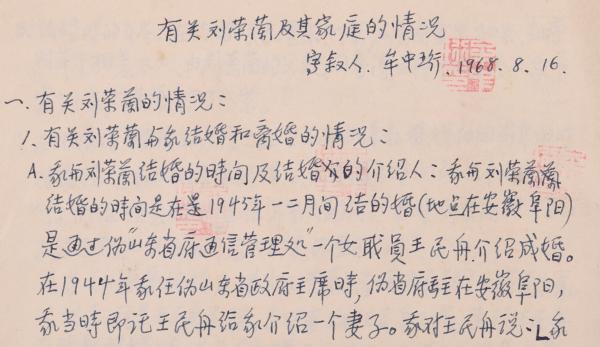 有关刘荣兰及其家庭的情况
写叙人. 牟中珩. 1968. 8. 16.
一. 有关刘荣兰的情况：
1. 有关刘荣兰与我结婚和离婚的情况：
A. 我与刘荣兰结婚的时间及结婚的介绍人：我与刘荣兰
结婚的时间是在是1945年一二月间结的婚(地点在安徽阜阳)
是通过伪"山东省府通信管理处"一个女职員王民舟介绍成婚。
在1944年我任伪山东省政府主席時, 伪省府在安徽阜阳,
我当時即记王民舟给我介绍一个妻子。我对王民舟说：我